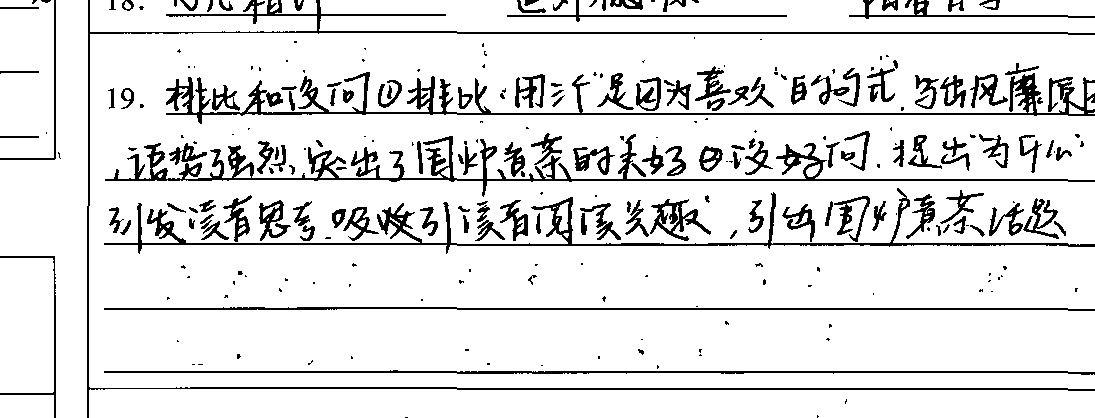 18.
19. 排比和设问①排比:用三个"是因为喜欢"的句式,写出风靡原因
,语势强烈,突出了围炉煮茶的美好②设好问.提出为什么
引发读者思考.吸收引读者阅读兴趣,引出围炉煮茶话题